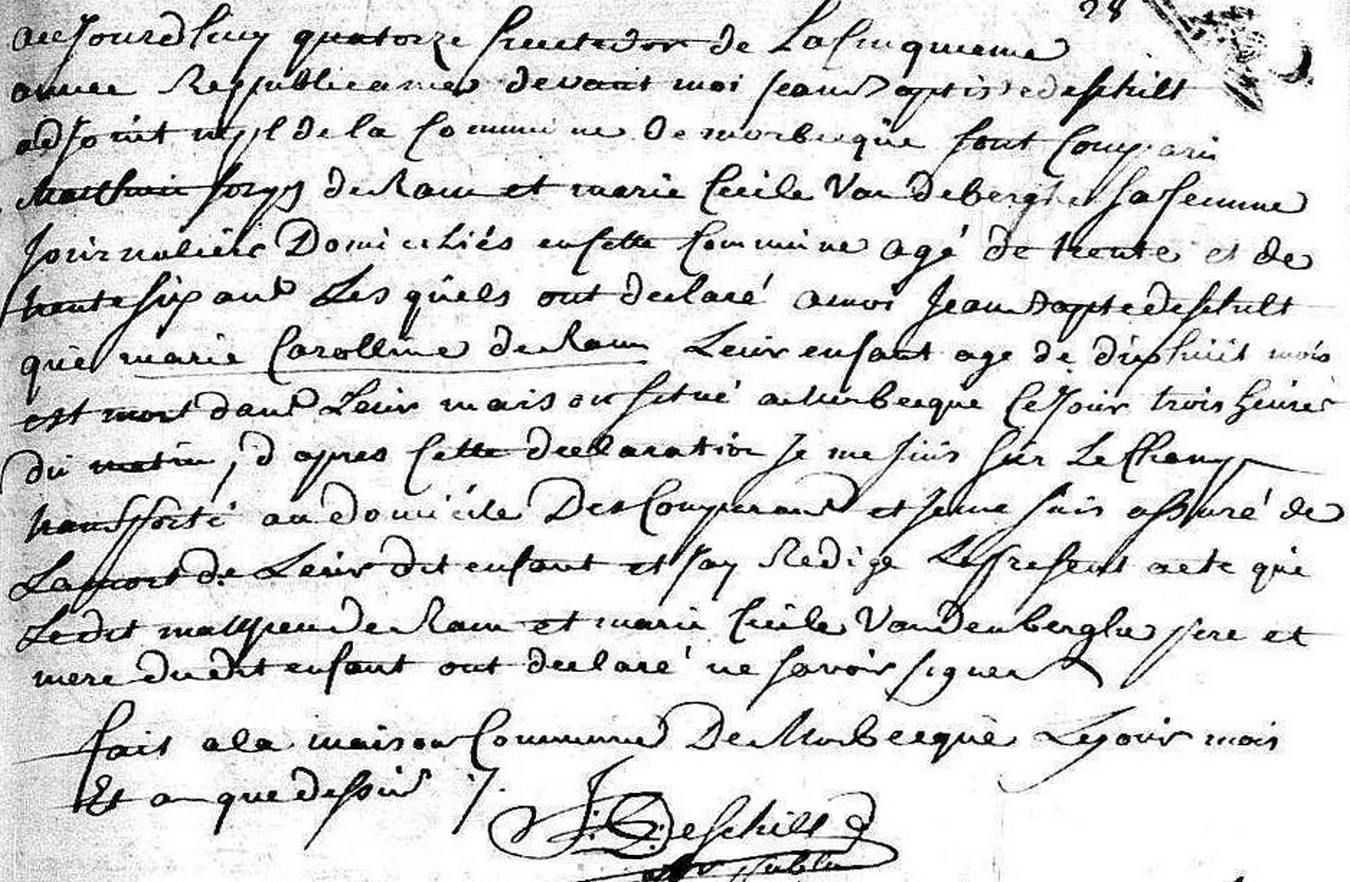 28
aujourdhuy quatorze fructidor de La Cinquieme
annee Republicaine devant moi jean Baptiste deschilt
adjoint mpl de la Commune de morbecque sont Comparu
Matthieu deRam et marie Cecile Van deberghe sa femme
Journaliers Domicilies en Cette Commune agé de trente et de
trente six ans Les quels ont declaré a moi Jean Bapte deschilt
que marie Carolline deRam Leur enfant age de dixhuit mois
est mort dans Leur maison situé a Morbecque Ce Jour trois heures
du matin, d apres Cette declaration Je me suis sur Le Champ
transporté au domicile Des Comparans et Je me suis assuré de
La mort de Leur dit enfant et Jay Redige Le present acte que
Le dit matthieu de Ram et marie Cecile Van Den berghe pere et
mere du dit enfant ont declaré ne savoir signer
fait a la maison Commune De Morbecque Le jour mois
Et an que dessus ·/.
J: B: Deschilt
offr public